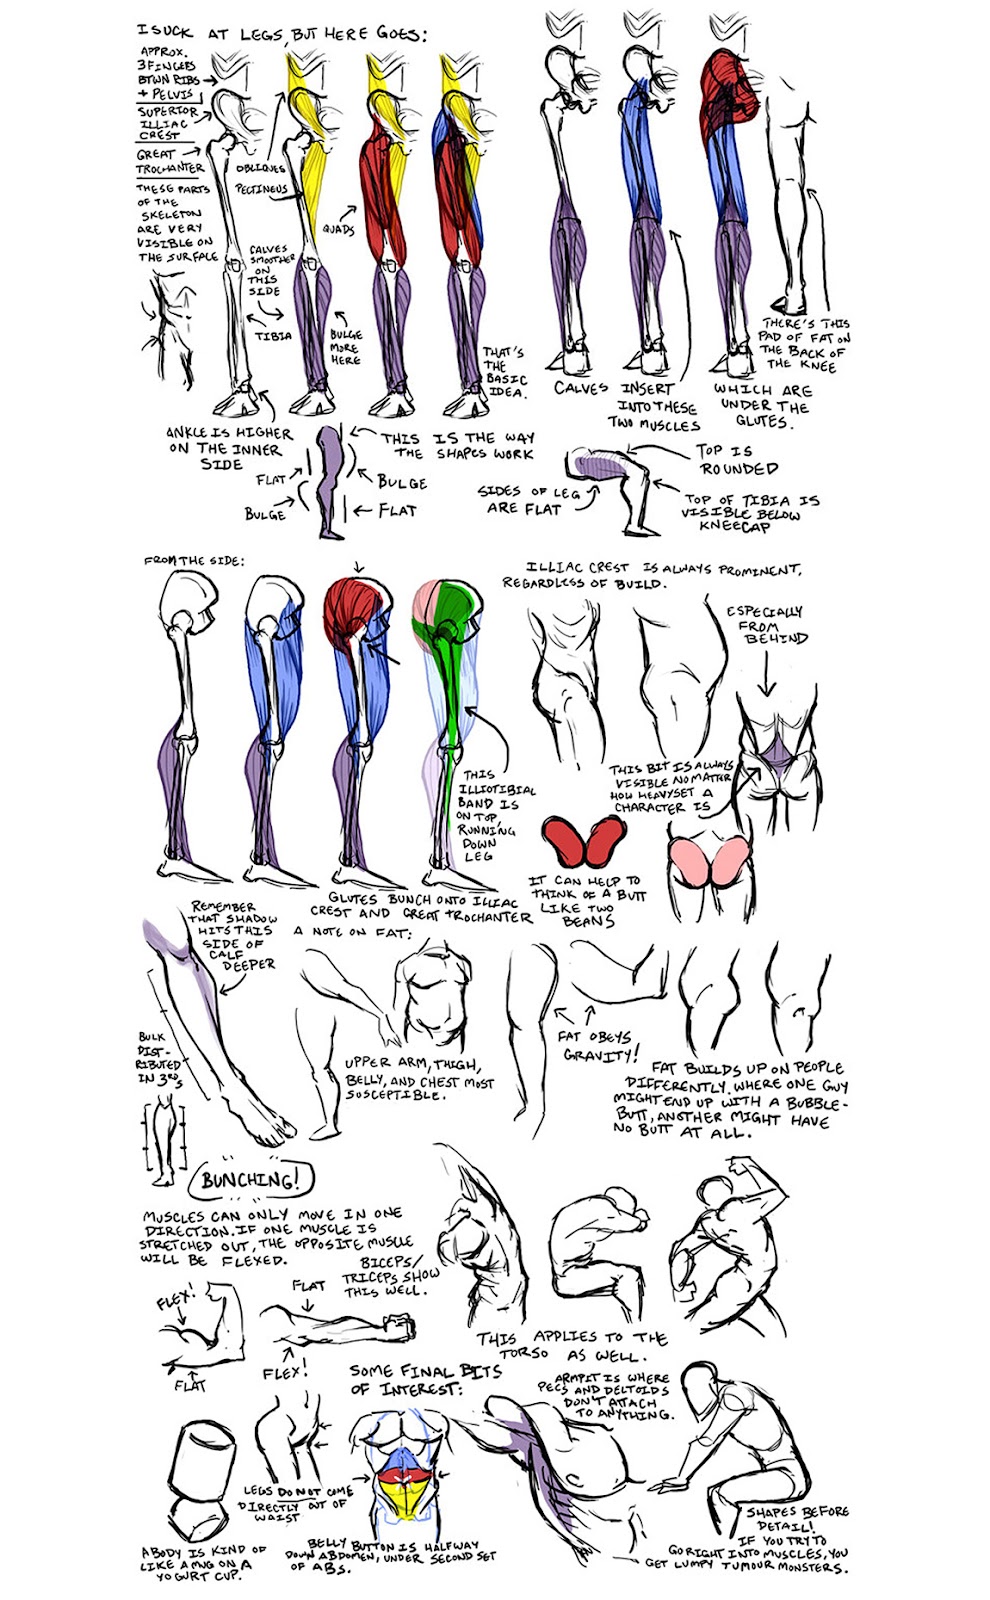 I SUCK AT LEGS, BUT HERE GOES:
APPROX.
3 FINGERS
BTWN RIBS
+ PELVIS
SUPERIOR
ILLIAC
CREST
GREAT
TROCHANTER
THESE PARTS
OF THE
SKELETON
ARE VERY
VISIBLE ON
THE SURFACE
OBLIQUES
PECTINEUS
QUADS
CALVES
SMOOTHER
ON
THIS
SIDE
TIBIA
BULGE
MORE
HERE
THAT'S
THE
BASIC
IDEA.
ANKLE IS HIGHER
ON THE INNER
SIDE
CALVES INSERT
INTO THESE
TWO MUSCLES
WHICH ARE
UNDER THE
GLUTES.
THERE'S THIS
PAD OF FAT ON
THE BACK OF
THE KNEE
THIS IS THE WAY
THE SHAPES WORK
FLAT
BULGE
BULGE
FLAT
TOP IS
ROUNDED
SIDES OF LEG
ARE FLAT
TOP OF TIBIA IS
VISIBLE BELOW
KNEECAP
FROM THE SIDE:
THIS
ILLIOTIBIAL
BAND IS
ON TOP,
RUNNING
DOWN
LEG
GLUTES BUNCH ONTO ILLIAC
CREST AND GREAT TROCHANTER
ILLIAC CREST IS ALWAYS PROMINENT,
REGARDLESS OF BUILD.
ESPECIALLY
FROM
BEHIND
THIS BIT IS ALWAYS
VISIBLE NO MATTER
HOW HEAVYSET A
CHARACTER IS
IT CAN HELP TO
THINK OF A BUTT
LIKE TWO
BEANS
REMEMBER
THAT SHADOW
HITS THIS
SIDE OF
CALF
DEEPER
BULK
DIST-
RIBUTED
IN 3RDS
A NOTE ON FAT:
UPPER ARM, THIGH,
BELLY, AND CHEST MOST
SUSCEPTIBLE.
FAT OBEYS
GRAVITY!
FAT BUILDS UP ON PEOPLE
DIFFERENTLY. WHERE ONE GUY
MIGHT END UP WITH A BUBBLE-
BUTT, ANOTHER MIGHT HAVE
NO BUTT AT ALL.
BUNCHING!
MUSCLES CAN ONLY MOVE IN ONE
DIRECTION. IF ONE MUSCLE IS
STRETCHED OUT, THE OPPOSITE MUSCLE
WILL BE FLEXED.
BICEPS/
TRICEPS SHOW
THIS WELL.
FLEX!
FLAT
FLAT
FLEX!
THIS APPLIES TO THE
TORSO AS WELL.
SOME FINAL BITS
OF INTEREST:
ARMPIT IS WHERE
PECS AND DELTOIDS
DON'T ATTACH
TO ANYTHING.
A BODY IS KIND OF
LIKE A MUG ON A
YOGURT CUP.
LEGS DO NOT COME
DIRECTLY OUT OF
WAIST
BELLY BUTTON IS HALFWAY
DOWN ABDOMEN, UNDER SECOND SET
OF ABS.
SHAPES BEFORE
DETAIL!
IF YOU TRY TO
GO RIGHT INTO MUSCLES, YOU
GET LUMPY TUMOUR MONSTERS.